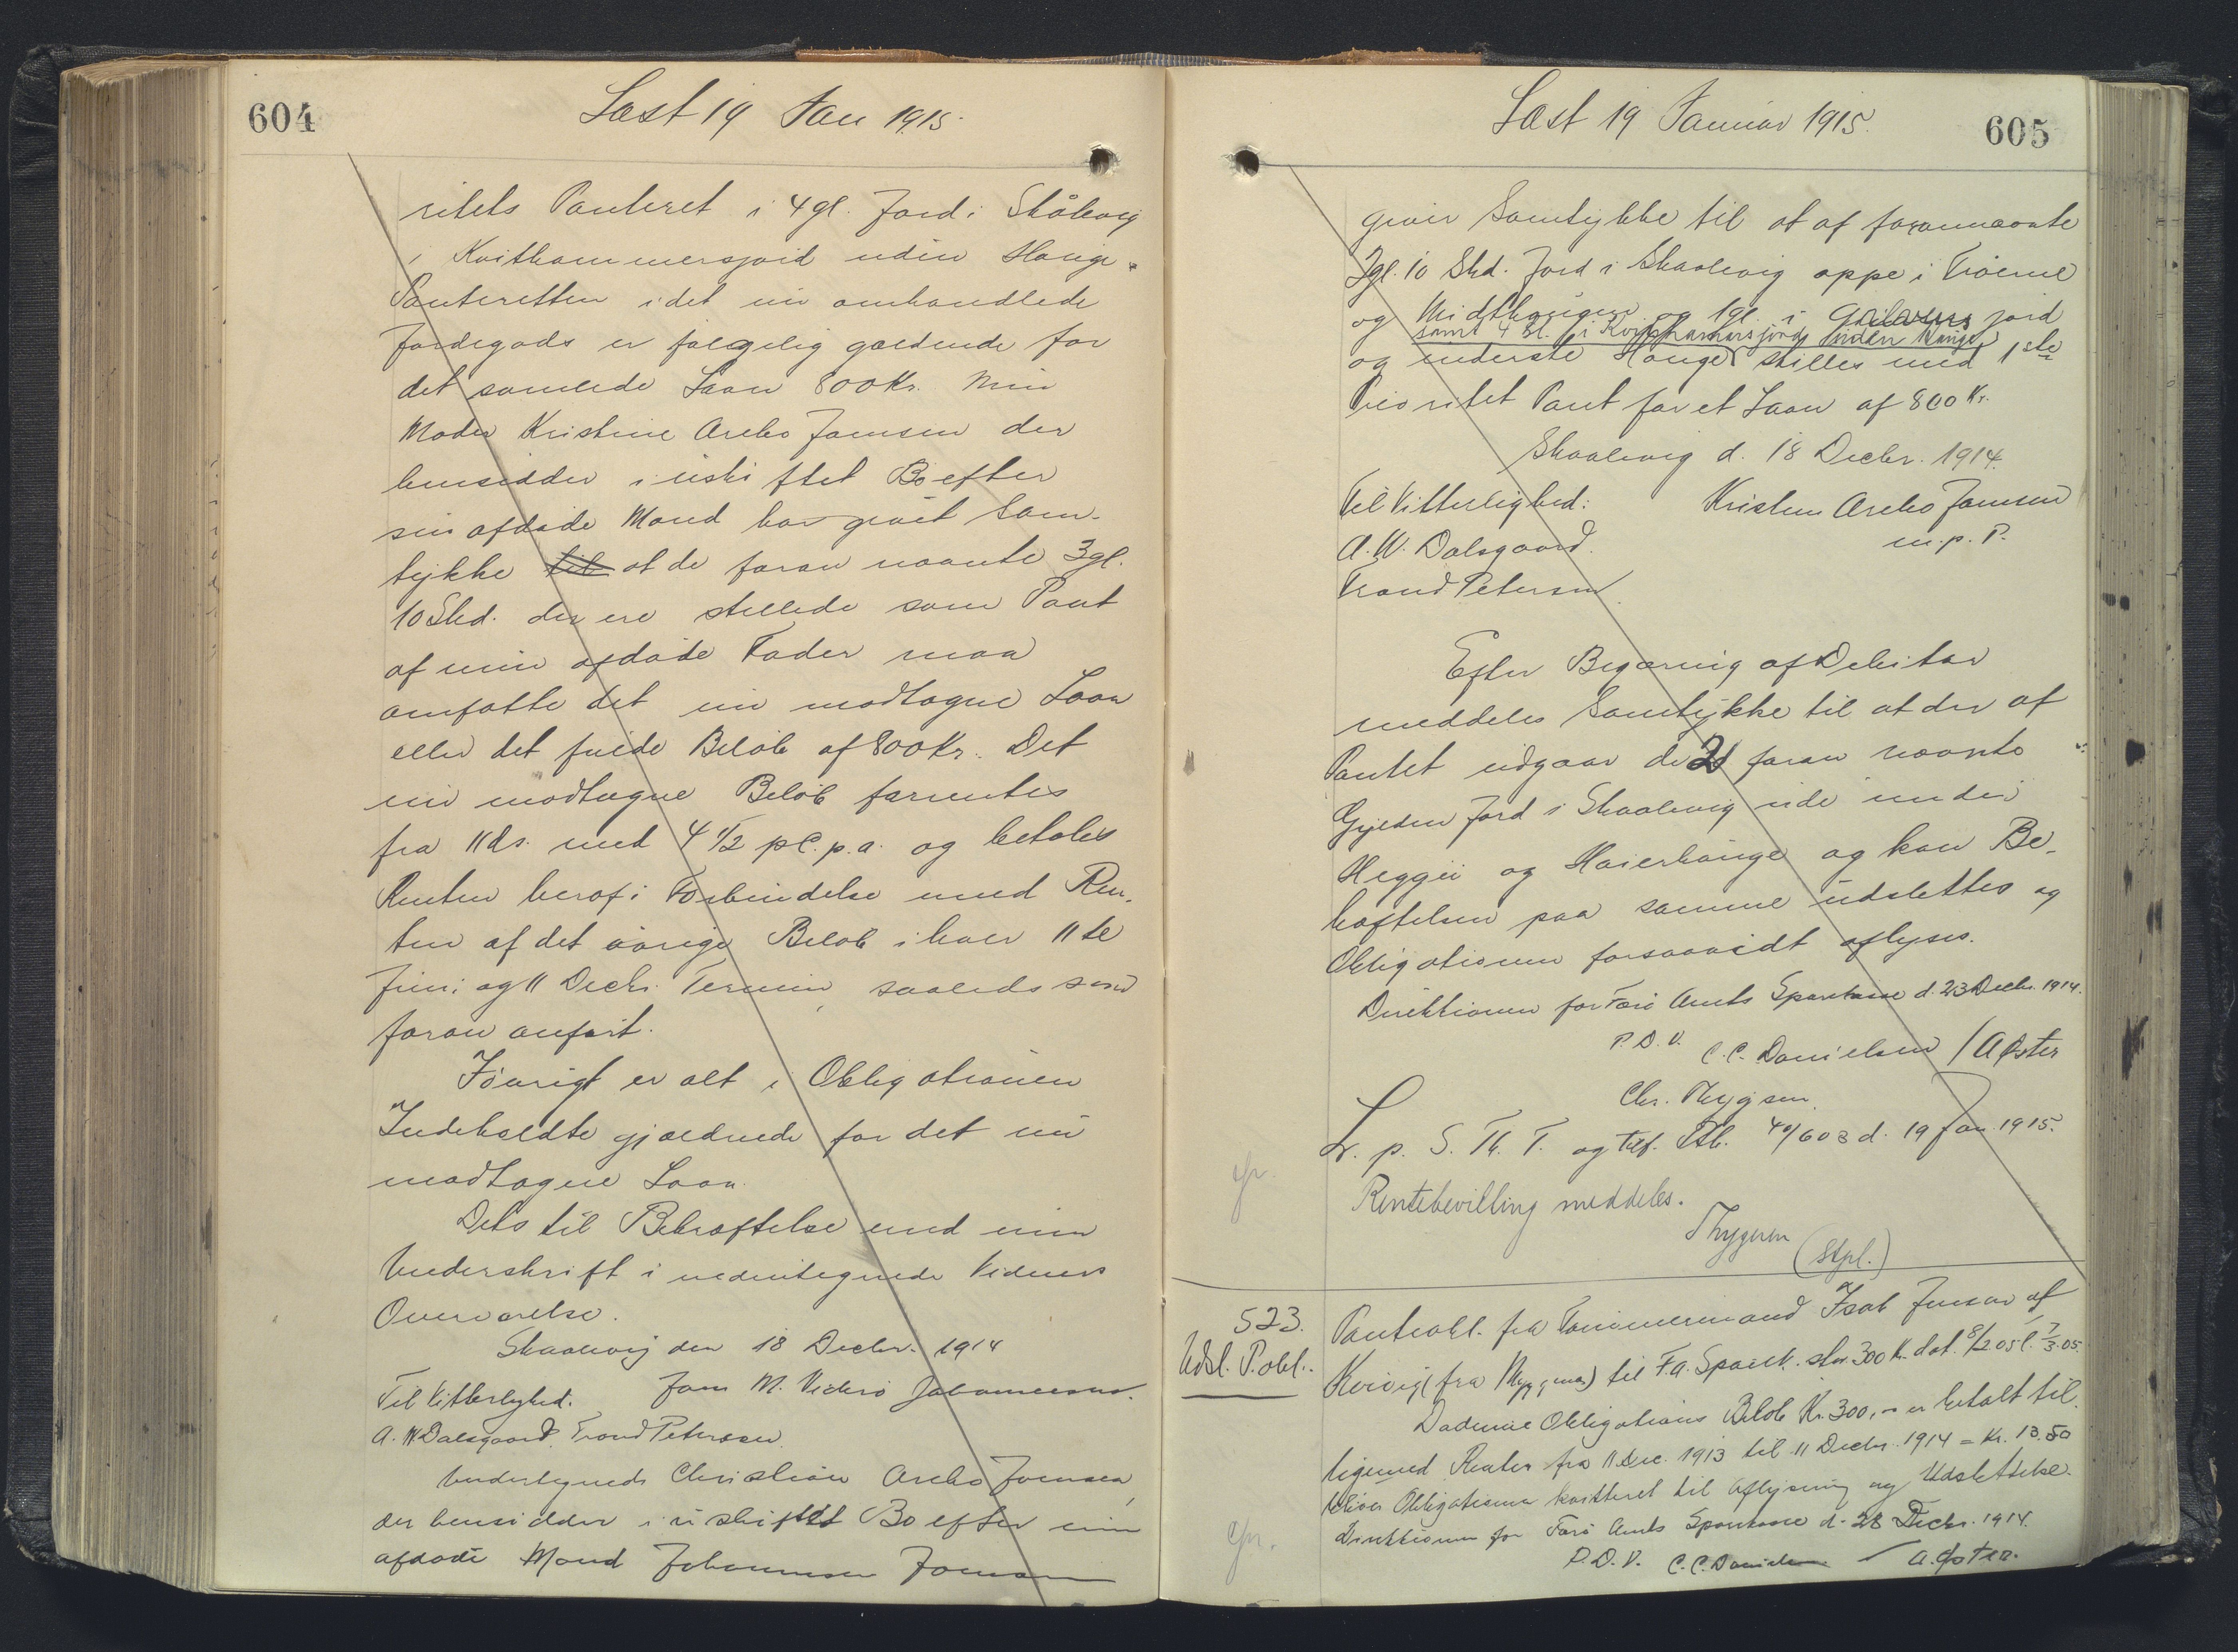 604
Læst 19 Jan 1915.
ritets Panteret i 4 gl. Jord i Skålevig
i Kvithammersjord uden Hauge.
Panteretten i det nu omhandlede
Jordegods er følgelig gældende for
det samlede Laan 800 Kr. Min
Moder Kristine Arebo Joensen der
hensidder i uskiftet Bo efter
sin afdøde Mand har givet Sam-
tykke til at de foran nævnte 3 gl.
10 Skd. der ere stillede som Pant
af min afdøde Fader maa
omfatte det nu modtagne Laan
eller det fulde Beløb af 800 Kr. Det
nu modtagne Beløb forrentes
fra 11 ds. med 4 1/2 pC. p.a. og betales
Renten heraf i Forbindelse med Ren-
ten af det øvrige Beløb i hver 11te
Juni og 11 Decbr. Termin, saaledes som
foran anført.
Iøvrigt er alt i Obligationen
Indeholdte gjældende for det nu
modtagne Laan.
Dets til Bekræftelse med min
Underskrift i nedentegnede Vidners
Overværelse.
Skaalevig den 18 Decbr. 1914
Til Vitterlighed. Joen M. Viderø Johannesen.
A. W. Dalsgaard. Trond Petersen.
Undertegnede Christine Arebo Joensen,
der hensidder i uskiftet Bo efter min
afdøde Mand Johannes Joensen
Læst 19 Januar 1915.
605
giver Samtykke til at af forannævnte
3 gl. 10 Skd. Jord i Skaalevig oppe i Trøerne
og Midthaugen og 1 gl. i jord
samt 4 Gl. i Kvithamarsjord uden Hauge
og inderste Hauge stilles med 1ste
Prioritet Pant for et Laan af 800 Kr.
Skaalevig d. 18 Decbr. 1914.
Til Vitterlighed: Kristine Arebo Joensen
A. W. Dalsgaard. m. p. P.
Trond Petersen.
Efter Begæring af Debitor
meddeles Samtykke til at der af
Pantet udgaar de 2 foran nævnte
Gylden Jord i Skaalevig ude under
Heggji og Høierhauge og kan Be-
hæftelsen paa samme udslettes og
Obligationen forsaavidt aflyses.
Direktionen for Færø Amts Sparekasse d. 23 Decbr. 1914.
P. D. V. C. C. Danielsen / A Øster
Chr. Thygesen.
L. p. S. Th. T. og tilf. Ptb. 40/603 d. 19 Jan 1915.
Rentebevilling meddeles.
Thygesen (Stpl.)
523. Pantobl. fra Tømmermand Isak Joensen af
Udsl. P.obl. Kvivig (fra) til F.A. Sparek. stor 300 Kr. dat. 8/2 05 l. 7/3 05.
Da denne Obligations Beløb Kr. 300,- er betalt til-
ligemed Renter fra 11 Dec. 1913 til 11 Decbr. 1914 = Kr. 13.50
bliver Obligationen kvitteret til Aflysning og Udslettelse.
Direktionen for Færø Amts Sparekasse d. 28 Decbr. 1914.
P. D. V. C. C. Danielsen / A. Øster.